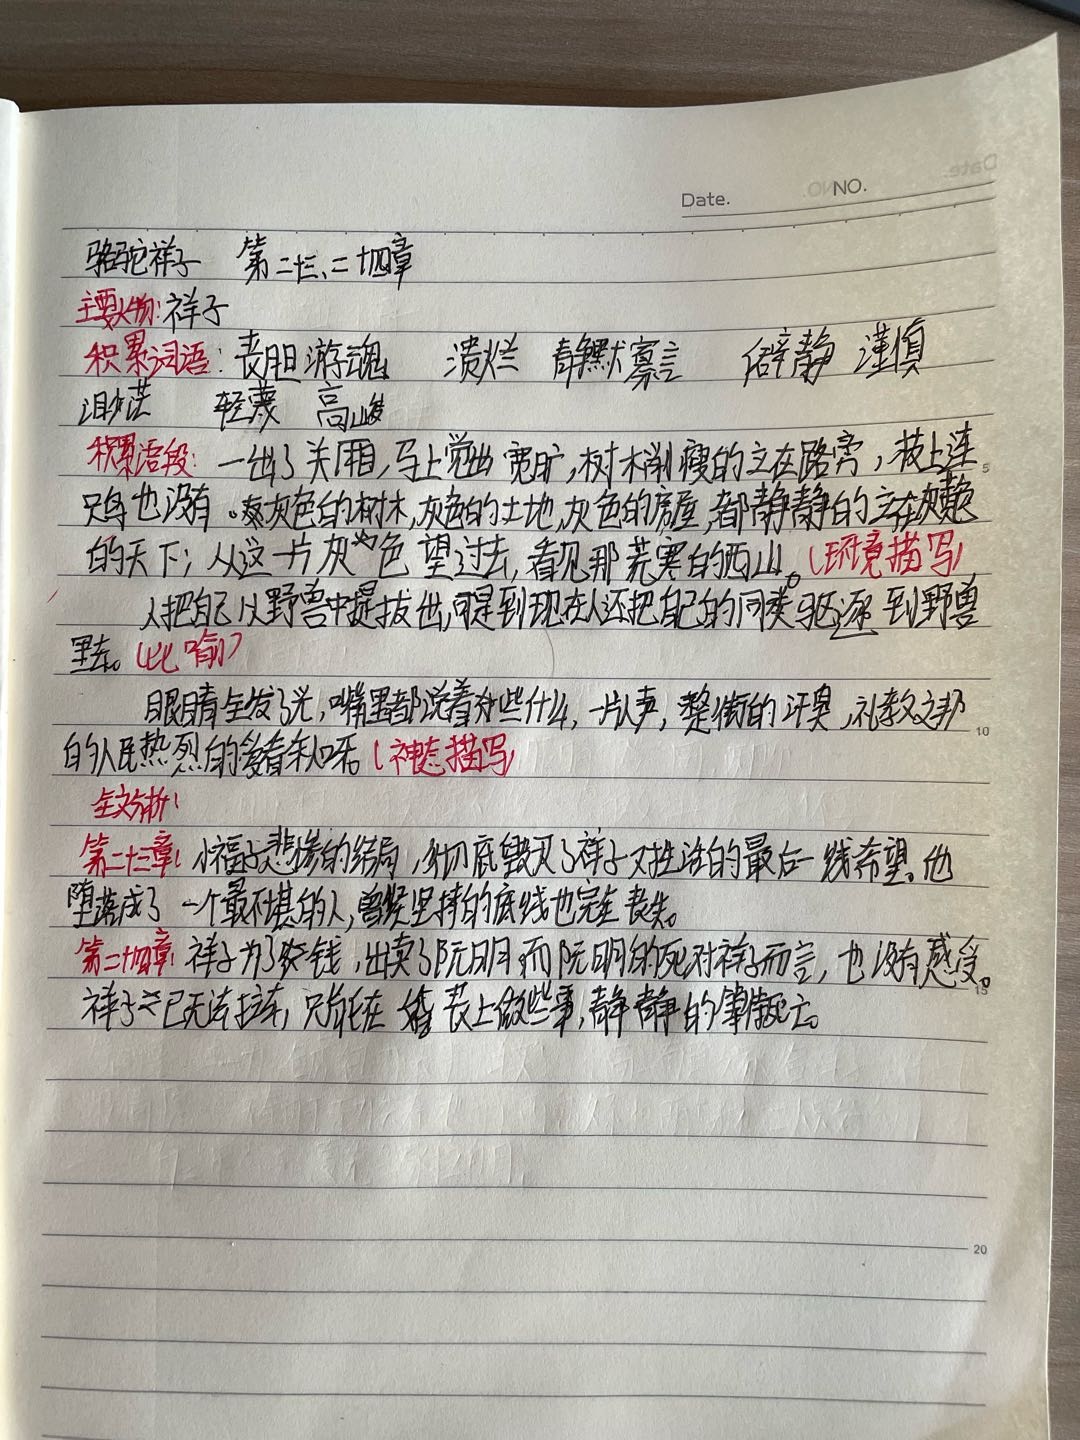 Date. NO.
骆驼祥子 第二十三、二十四章
主要人物：祥子
积累词语：丧胆游魂 溃烂 静默寡言 僻静 谨慎
泪 轻蔑 高峻
积累语段：一出了关厢，马上觉出宽旷，树木削瘦的立在路旁，枝上连
只鸟也没有。灰色的树木，灰色的土地，灰色的房屋，都静静的立在灰
的天下；从这一片灰色望过去，看见那荒寒的西山。（环境描写）
人把自己从野兽中提拔出，可是到现在人还把自己的同类驱逐到野兽
里去。（比喻）
眼睛全发了光，嘴里都说着些什么，一片人声，整街的汗臭，礼教之邦
的人民热烈的看杀人呀。（神态描写）
全文分析：
第二十三章：小福子悲惨的结局，彻底毁灭了祥子对生活的最后一线希望。他
堕落成了一个最不堪的人，曾经坚持的底线也完全丧失。
第二十四章：祥子为了钱，出卖了阮明，而阮明的死对祥子而言，也没有感受。
祥子已无法拉车，只能在婚丧上做些事，静静的等死去。
5
10
15
20